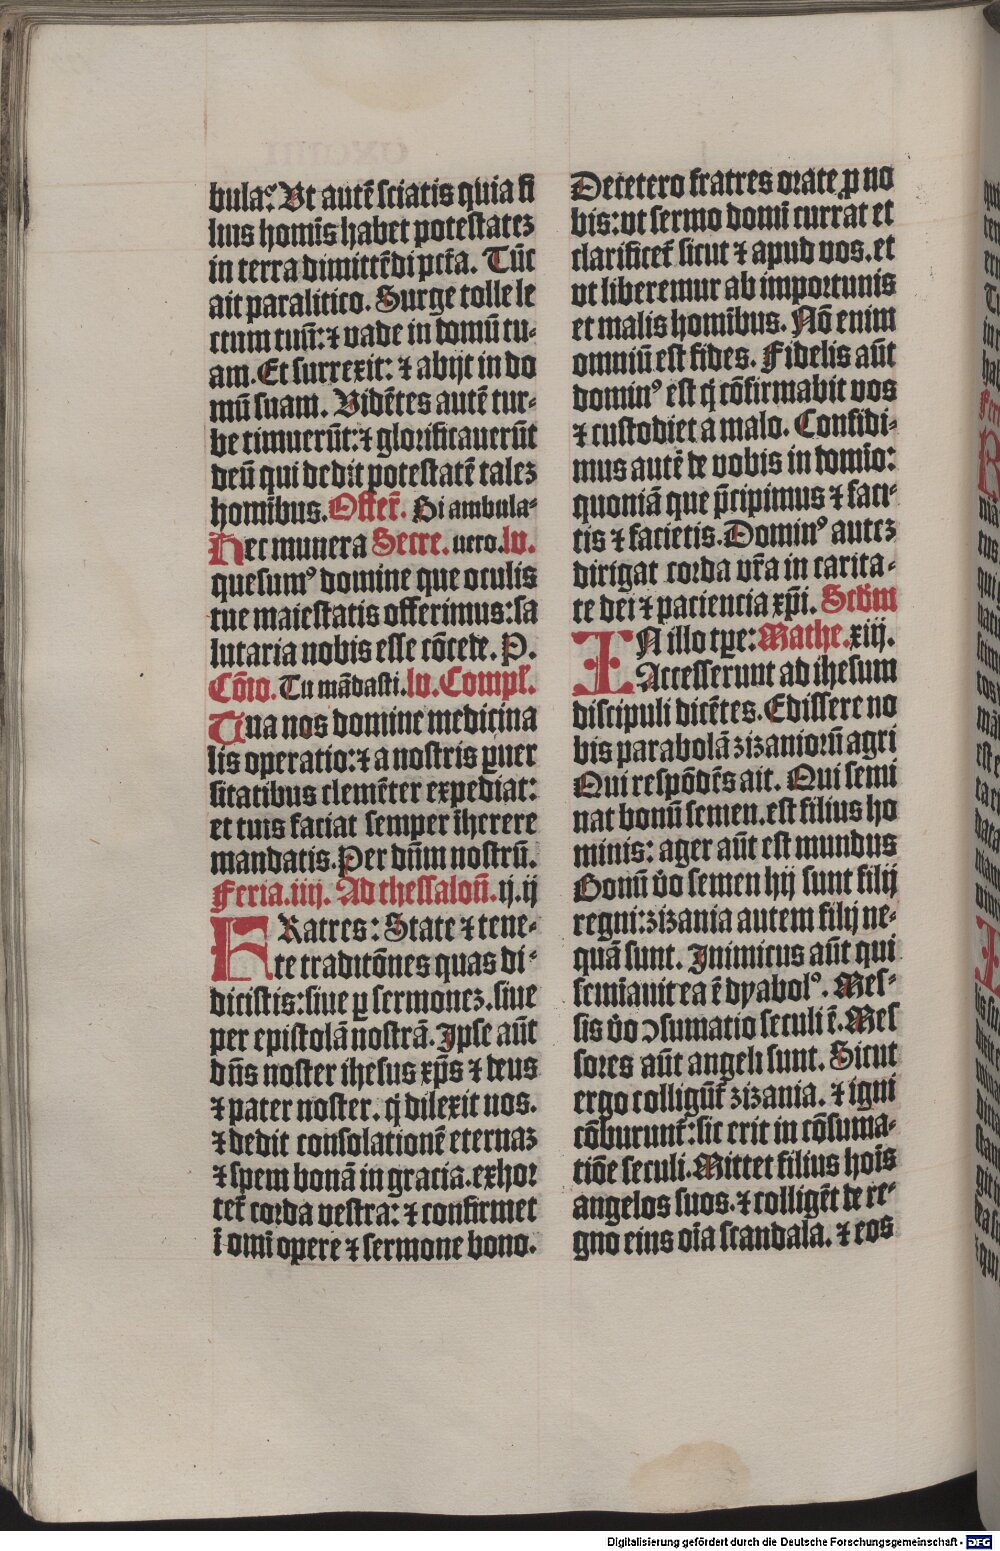 bulaꝰ. Vt autē sciatis quia fi
lius homīs habet potestatez
in terra dimittēdi pctā. Tūc
ait paralitico. Surge tolle le
ctum tuū: ⁊ vade in domū tu-
am. Et surrexit: ⁊ abijt in do
mū suam. Vidētes autē tur-
be timuerūt: ⁊ glorificauerūt
deū qui dedit potestatē talez
homībus. Offer̄. Si ambula-
Hec munera Secre. uero. lv.
quesumꝰ domine que oculis
tue maiestatis offerimus: sa
lutaria nobis esse cōcede. P.
Cōio. Tu mādasti. lv. Compl̄.
Tua nos domine medicina
lis operatio: ⁊ a nostris ꝑuer
sitatibus clemēter expediat:
et tuis faciat semper īherere
mandatis. Per dn̄m nostrū.
Feria. iiij. Ad thessaloñ. ij. ij
FRatres: State ⁊ tene-
te traditōnes quas di-
dicistis: siue ꝑ sermonez. siue
per epistolā nostrā. Ipse aūt
dn̄s noster ihesus xp̄s ⁊ deus
⁊ pater noster. q̄ dilexit nos.
⁊ dedit consolationē eternaz
⁊ spem bonā in gracia. exhor
tet̄ corda vestra: ⁊ confirmet
ī omī opere ⁊ sermone bono.
Decetero fratres orate ꝓ no
bis: vt sermo domī currat et
clarificet̄ sicut ⁊ apud vos. et
vt liberemur ab importunis
et malis homībus. Nō enim
omniū est fides. Fidelis aūt
dominꝰ est q̄ cōfirmabit vos
⁊ custodiet a malo. Confidi-
mus autē de vobis in domīo:
quoniā que p̄cipimus ⁊ faci-
tis ⁊ facietis. Dominꝰ autez
dirigat corda vr̄a in carita-
te dei ⁊ paciencia xp̄i. Scd̄m
IN illo tꝑe: Mathe. xiij.
Accesserunt ad ihesum
discipuli dicētes. Edissere no
bis parabolā zizaniorū agri
Qui respōdēs ait. Qui semi
nat bonū semen. est filius ho
minis: ager aūt est mundus
Bonū v̄o semen hij sunt filij
regni: zizania autem filij ne-
quā sunt. Inimicus aūt qui
semīauit ea ē dyabolꝰ. Mes-
sis v̄o ꝯsumatio seculi ē. Mes
sores aūt angeli sunt. Sicut
ergo colligūt̄ zizania. ⁊ igni
cōburunt̄: sic erit in cōsuma-
tiōe seculi. Mittet filius hoīs
angelos suos. ⁊ colligēt de re-
gno eius oīa scandala. ⁊ eos
Digitalisierung gefördert durch die Deutsche Forschungsgemeinschaft - DFG